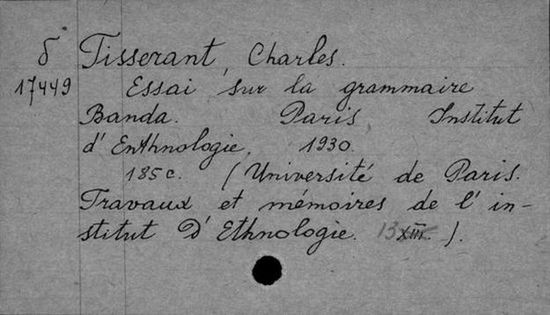 δ Tisserant, Charles.
17449 Essai sur la grammaire
Banda. Paris Institut
d'Enthnologie, 1930.
185c. (Université de Paris.
Travaux et mémoires de l'in-
stitut D'Ethnologie. 13 XIII. ).